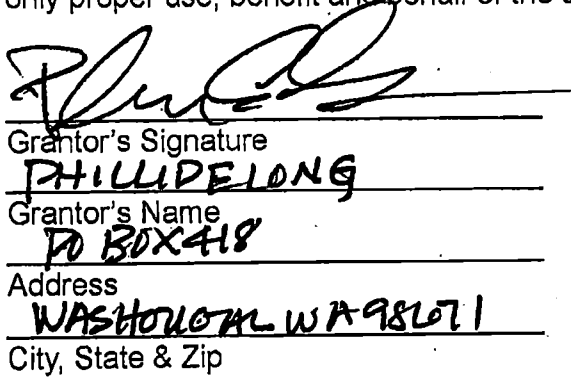 only proper use, benefit and behalf of the
Grantor's Signature
PHILLIP DELONG
Grantor's Name
PO BOX 418
Address
WASHOUGAL WA 98671
City, State & Zip